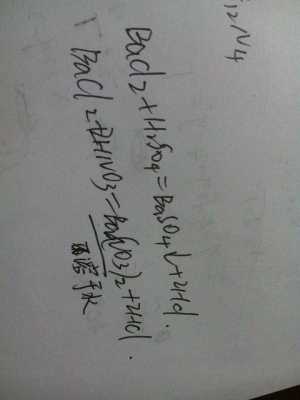 i₁₂N₄
BaCl₂+H₂SO₄=BaSO₄↓+2HCl.
BaCl₂+2HNO₃=Ba(NO₃)₂+2HCl.
溶于水